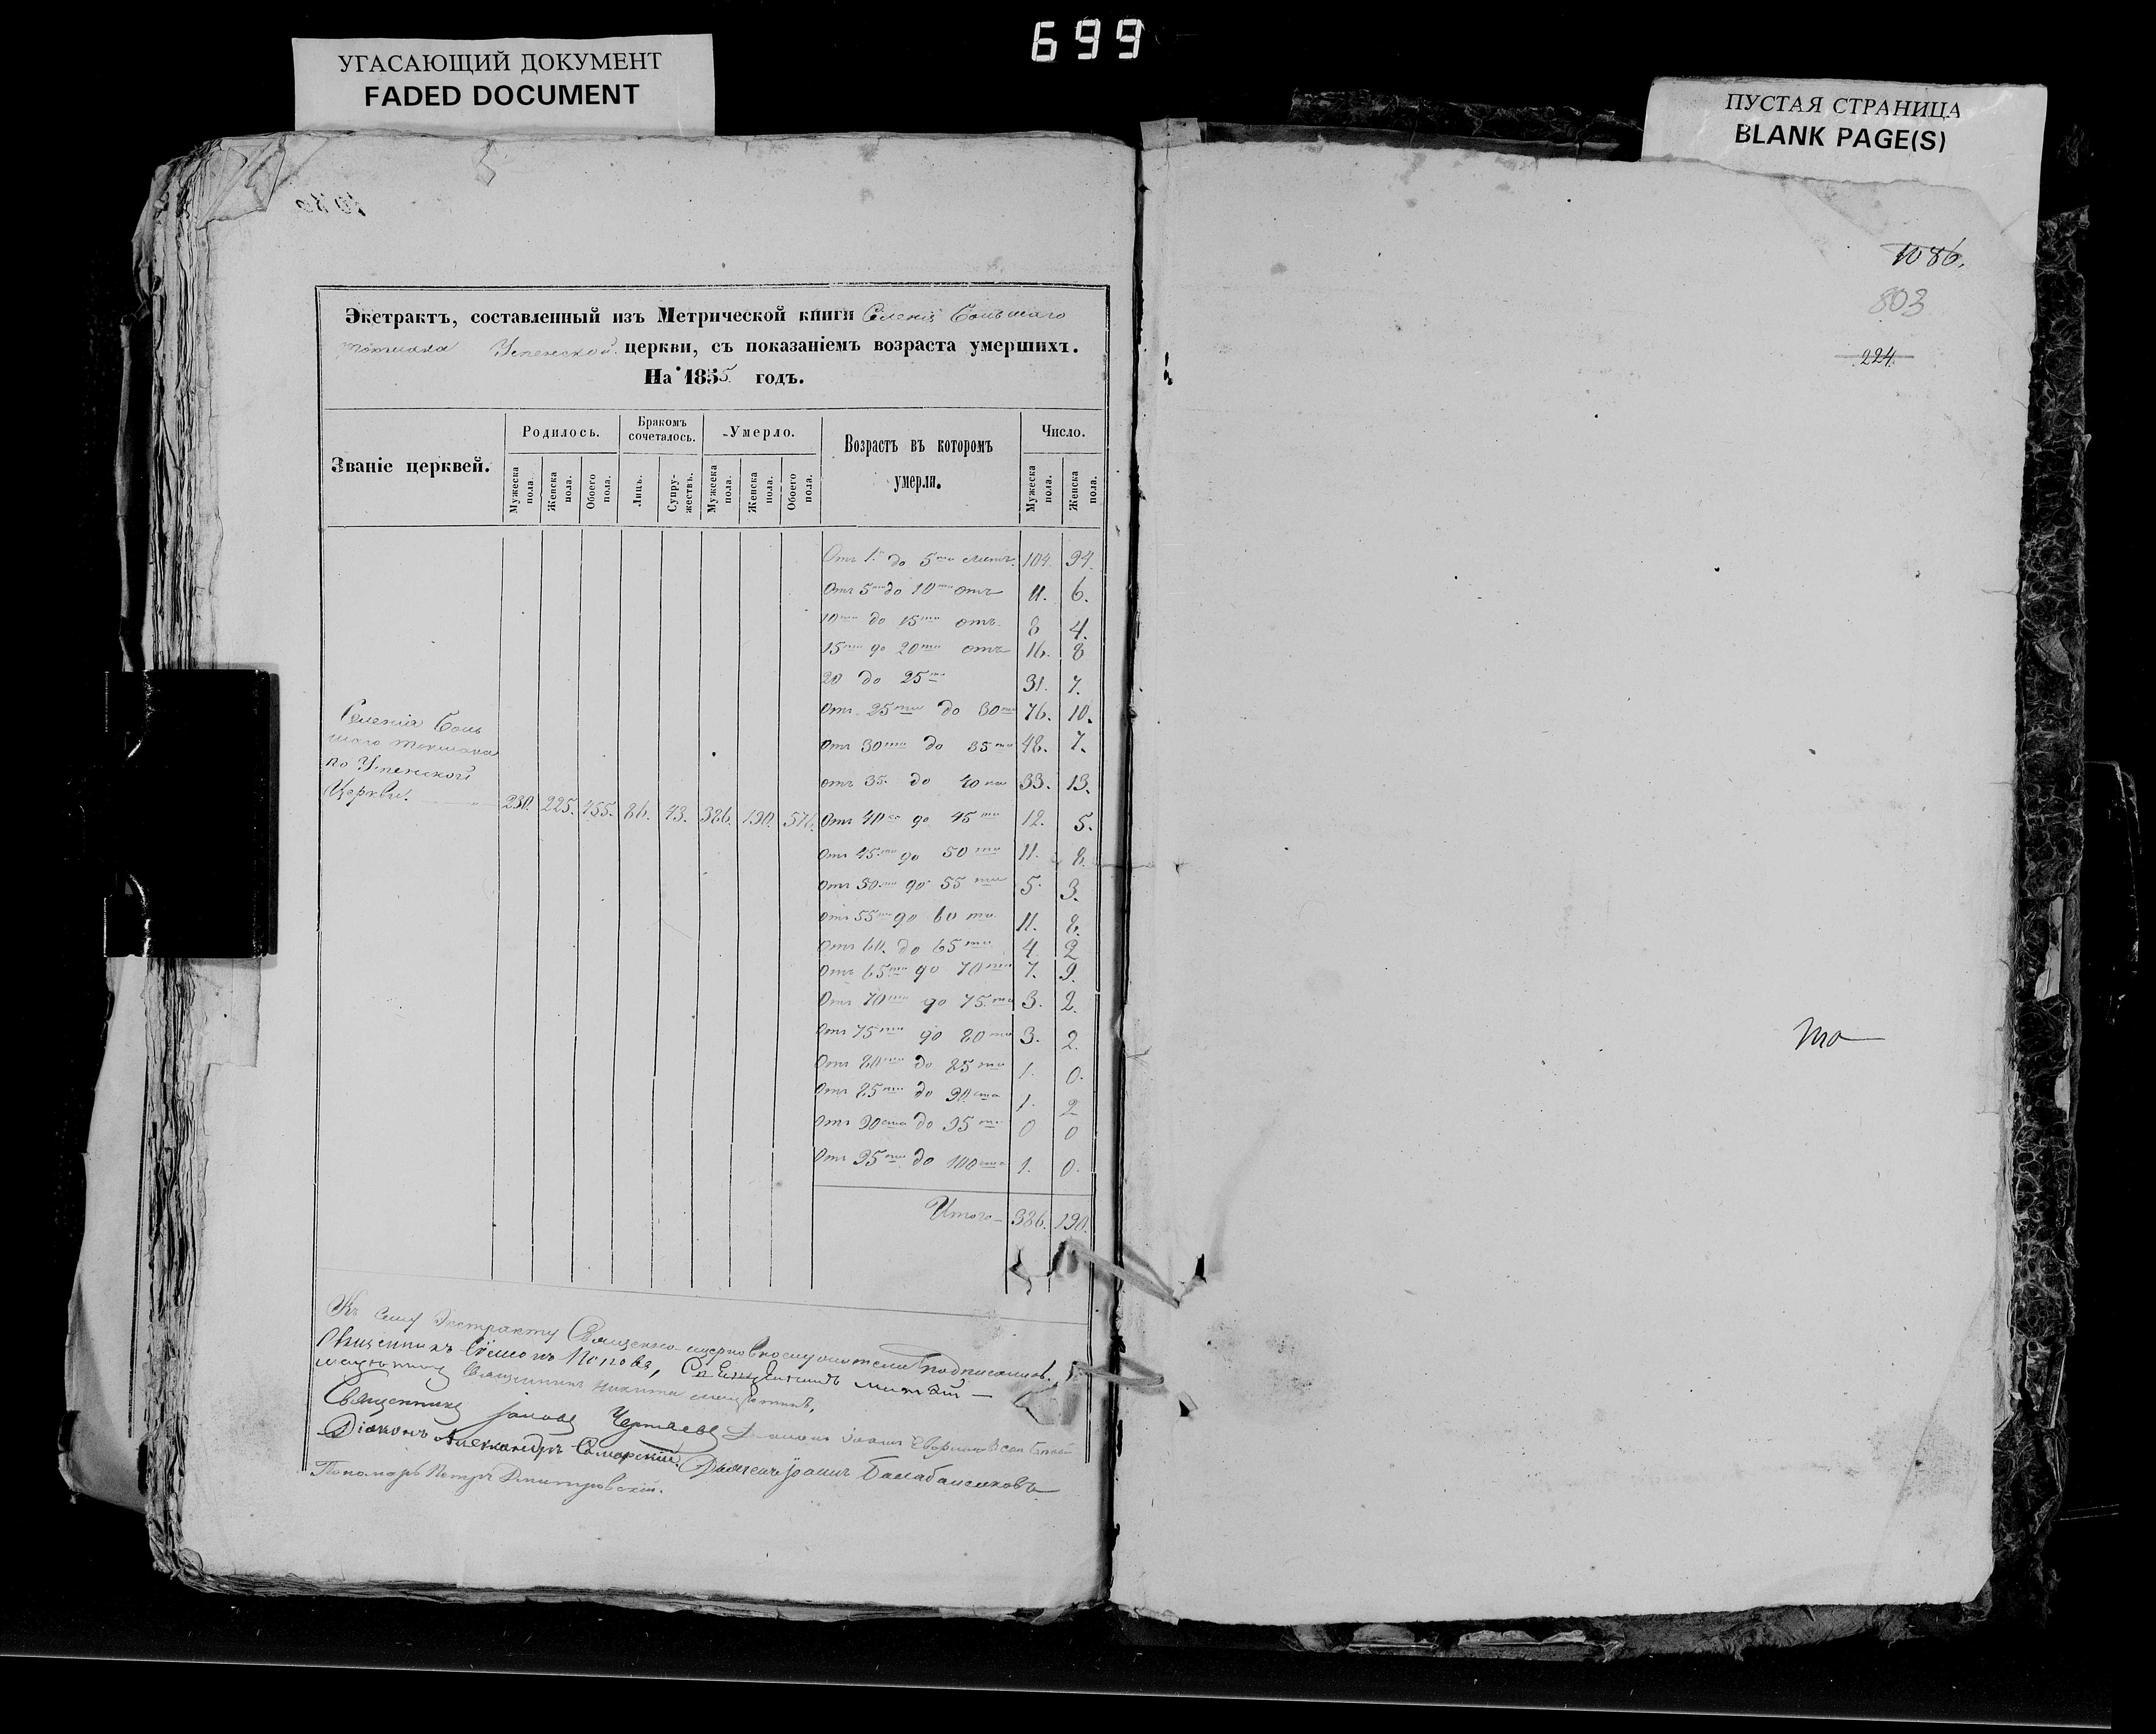 699
УГАСАЮЩИЙ ДОКУМЕНТ
FADED DOCUMENT
ПУСТАЯ СТРАНИЦА
BLANK PAGE(S)
1086.
803
224.
Экстрактъ, составленный изъ Метрической книги Селенія Большаго
Токмака Успенской церкви, съ показаніемъ возраста умершихъ.
На 1855 годъ.
Званіе церквей.
Родилось.
Бракомъ сочеталось.
Умерло.
Возрастъ въ которомъ умерли.
Число.
Мужеска пола.
Женска пола.
Обоего пола.
Лицъ.
Супружествъ.
Мужеска пола.
Женска пола.
Обоего пола.
Мужеска пола.
Женска пола.
Отъ 1 до 5ти летъ. 104. 94.
Отъ 5ти до 10ти отъ 11. 6.
10ти до 15ти отъ 8 4.
15ти до 20ти отъ 16. 8
20 до 25ти 31. 7.
Отъ 25ти до 30ти 76. 10.
отъ 30ти до 35ти 48. 7.
отъ 35. до 40ка 33. 13.
Отъ 40ка до 45ти 12. 5.
Отъ 45ти до 50ти 11. 8.
Отъ 50ти до 55ти 5. 3.
отъ 55ти до 60ти 11. 8.
Отъ 60. до 65ти 4. 2
Отъ 65ти до 70ти 7. 9.
Отъ 70ти до 75ти 3. 2.
Отъ 75ти до 80ти 3. 2.
Отъ 80ти до 85ти 1. 0.
Отъ 85ти до 90ста 1. 2
Отъ 90ста до 95ти 0 0
Отъ 95ти до 100ста 1. 0.
Итого 386. 190.
Селенія Боль
шаго Токмака
по Успенской
Церкви. 230. 225. 455. 86. 43. 386. 190. 576.
Къ сему Экстракту Священно-церковнослужители подписались.
Священникъ Симеонъ Поповъ,
Священникъ Никита
Священникъ Чернявскій
Діаконъ Александръ Самарскій. Іоаннъ Балабанековъ
Пономарь Петръ Дмитровскій.